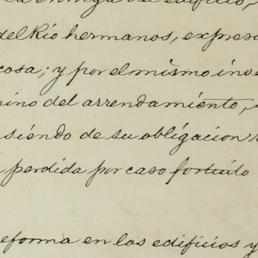 del Rio hermanos, expresa
cosa; y por el mismo inve
mino del arrendamiento,
siendo de su obligacion
perdida por caso fortuito
eforma en los edificios y